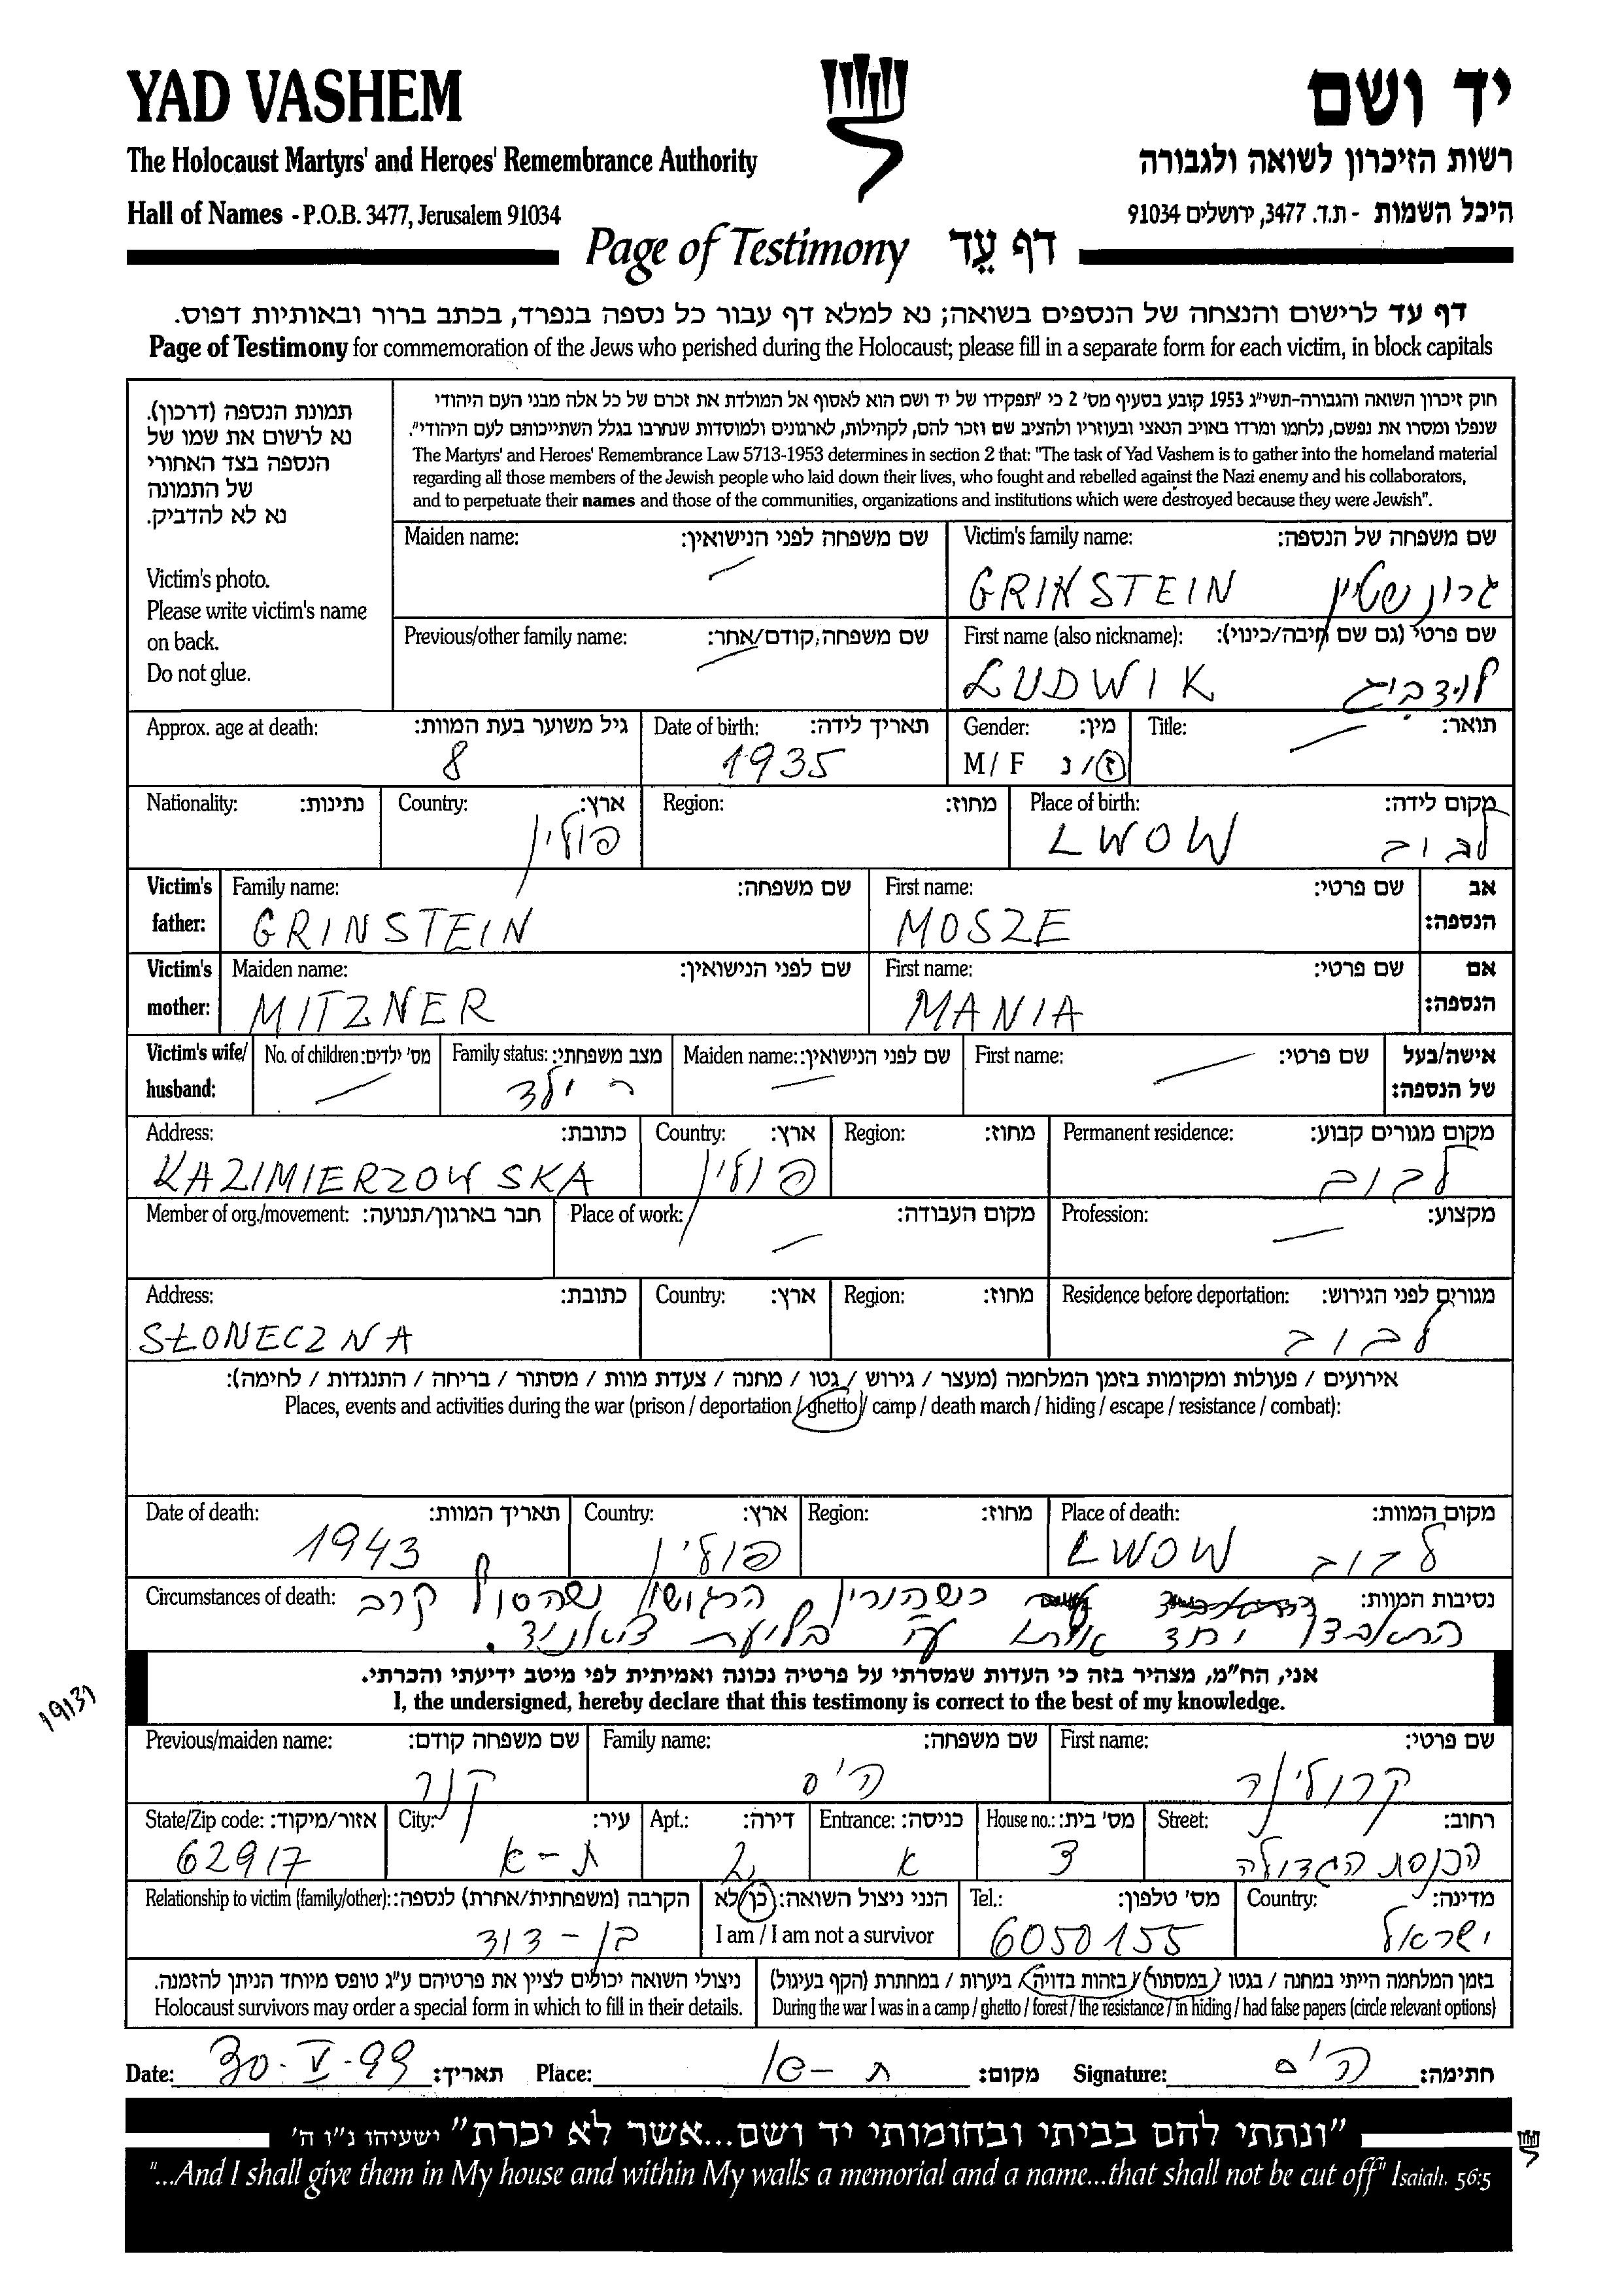 YAD VASHEM
יד ושם
The Holocaust Martyrs' and Heroes' Remembrance Authority
רשות הזיכרון לשואה ולגבורה
Hall of Names - P.O.B. 3477, Jerusalem 91034
היכל השמות - ת.ד. 3477, ירושלים 91034
Page of Testimony דף עֵד
דף עד לרישום והנצחה של הנספים בשואה; נא למלא דף עבור כל נספה בנפרד, בכתב ברור ובאותיות דפוס.
Page of Testimony for commemoration of the Jews who perished during the Holocaust; please fill in a separate form for each victim, in block capitals
תמונת הנספה (דרכון).
נא לרשום את שמו של
הנספה בצד האחורי
של התמונה
נא לא להדביק.
Victim's photo.
Please write victim's name
on back.
Do not glue.
חוק זיכרון השואה והגבורה-תשי"ג 1953 קובע בסעיף מס' 2 כי "תפקידו של יד ושם הוא לאסוף אל המולדת את זכרם של כל אלה מבני העם היהודי
שנפלו ומסרו את נפשם, נלחמו ומרדו באויב הנאצי ובעוזריו ולהציב שם וזכר להם, לקהילות, לארגונים ולמוסדות שנחרבו בגלל השתייכותם לעם היהודי".
The Martyrs' and Heroes' Remembrance Law 5713-1953 determines in section 2 that: "The task of Yad Vashem is to gather into the homeland material
regarding all those members of the Jewish people who laid down their lives, who fought and rebelled against the Nazi enemy and his collaborators,
and to perpetuate their names and those of the communities, organizations and institutions which were destroyed because they were Jewish".
Maiden name: שם משפחה לפני הנישואין:
Victim's family name: שם משפחה של הנספה:
GRINSTEIN גרונשטיין
Previous/other family name: שם משפחה, קודם/אחר:
First name (also nickname): שם פרטי (גם שם חיבה/כינוי):
LUDWIK לודביג
Approx. age at death: גיל משוער בעת המוות:
8
Date of birth: תאריך לידה:
1935
Gender: מין:
M / F ז / נ
Title: תואר:
Nationality: נתינות:
Country: ארץ:
פולין
Region: מחוז:
Place of birth: מקום לידה:
LWOW לבוב
Victim's father:
Family name: שם משפחה:
GRINSTEIN
First name: שם פרטי:
MOSZE
אב הנספה:
Victim's mother:
Maiden name: שם לפני הנישואין:
MITZNER
First name: שם פרטי:
MANIA
אם הנספה:
Victim's wife/ husband:
No. of children: מס' ילדים:
Family status: מצב משפחתי:
ילד
Maiden name: שם לפני הנישואין:
First name: שם פרטי:
אישה/בעל של הנספה:
Address: כתובת:
KAZIMIERZOWSKA
Country: ארץ:
פולין
Region: מחוז:
Permanent residence: מקום מגורים קבוע:
לבוב
Member of org./movement: חבר בארגון/תנועה:
Place of work: מקום העבודה:
Profession: מקצוע:
Address: כתובת:
SŁONECZNA
Country: ארץ:
Region: מחוז:
Residence before deportation: מגורים לפני הגירוש:
לבוב
אירועים / פעולות ומקומות בזמן המלחמה (מעצר / גירוש / גטו / מחנה / צעדת מוות / מסתור / בריחה / התנגדות / לחימה):
Places, events and activities during the war (prison / deportation / ghetto / camp / death march / hiding / escape / resistance / combat):
Date of death: תאריך המוות:
1943
Country: ארץ:
פולין
Region: מחוז:
Place of death: מקום המוות:
LWOW לבוב
Circumstances of death: נסיבות המוות:
כשהורין הרגישו שהסוף קרב
התאבדו יחד אותו ע"ה בליעת ציאניד.
אני, הח"מ, מצהיר בזה כי העדות שמסרתי על פרטיה נכונה ואמיתית לפי מיטב ידיעתי והכרתי.
I, the undersigned, hereby declare that this testimony is correct to the best of my knowledge.
19131
Previous/maiden name: שם משפחה קודם:
קנר
Family name: שם משפחה:
הים
First name: שם פרטי:
קרולינה
State/Zip code: אזור/מיקוד:
62917
City: עיר:
ת-א
Apt.: דירה:
2
Entrance: כניסה:
א
House no.: מס' בית:
3
Street: רחוב:
הכנסת הגדולה
Relationship to victim (family/other): הקרבה (משפחתית/אחרת) לנספה:
בן-דוד
הנני ניצול השואה: כן/לא
I am / I am not a survivor
Tel.: מס' טלפון:
6050155
Country: מדינה:
ישראל
ניצולי השואה יכולים לציין את פרטיהם ע"ג טופס מיוחד הניתן להזמנה.
Holocaust survivors may order a special form in which to fill in their details.
בזמן המלחמה הייתי במחנה / בגטו / במסתור / בזהות בדויה / ביערות / במחתרת (הקף בעיגול)
During the war I was in a camp / ghetto / forest / the resistance / in hiding / had false papers (circle relevant options)
Date: 30-V-99 תאריך:
Place: מקום:
Signature: הים חתימה:
"ונתתי להם בביתי ובחומותי יד ושם...אשר לא יכרת" ישעיהו נ"ו ה'
"...And I shall give them in My house and within My walls a memorial and a name...that shall not be cut off" Isaiah. 56:5